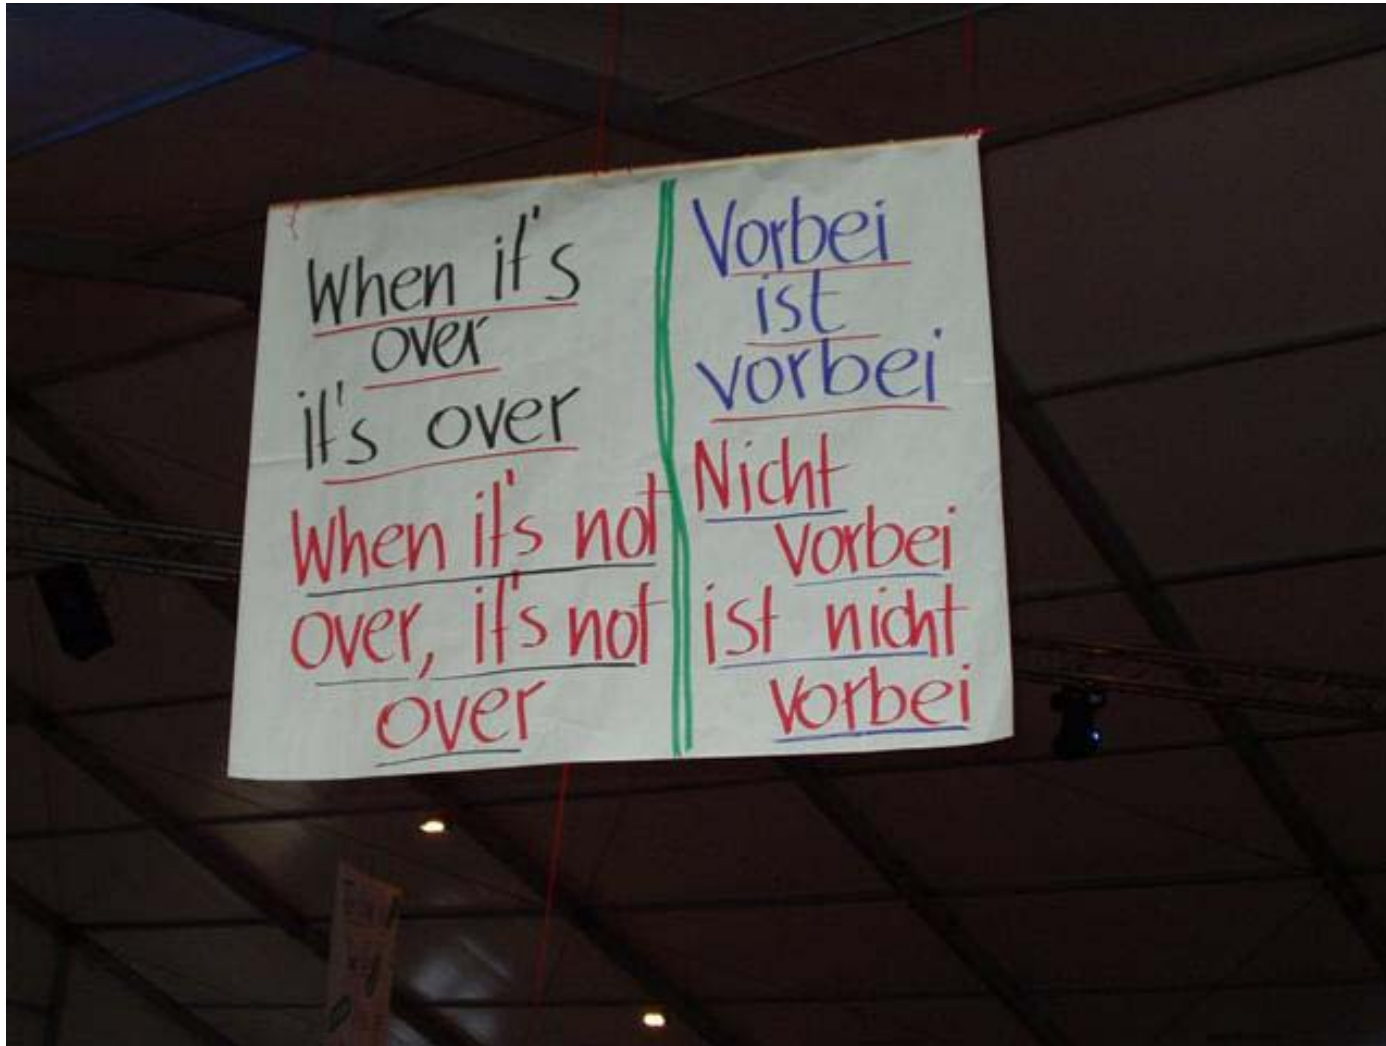 When it's
over
it's over
When it's not
over, it's not
over
Vorbei
ist
vorbei
Nicht
vorbei
ist nicht
vorbei